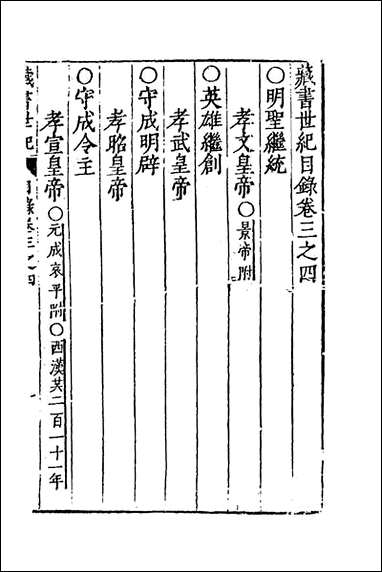 藏書世紀目錄卷三之四
〇明聖繼統
孝文皇帝〇景帝附
〇英雄繼創
孝武皇帝
〇守成明辟
孝昭皇帝
〇守成令主
孝宣皇帝〇元成哀平附〇西漢共二百一十一年
藏書世紀 目錄卷三之四